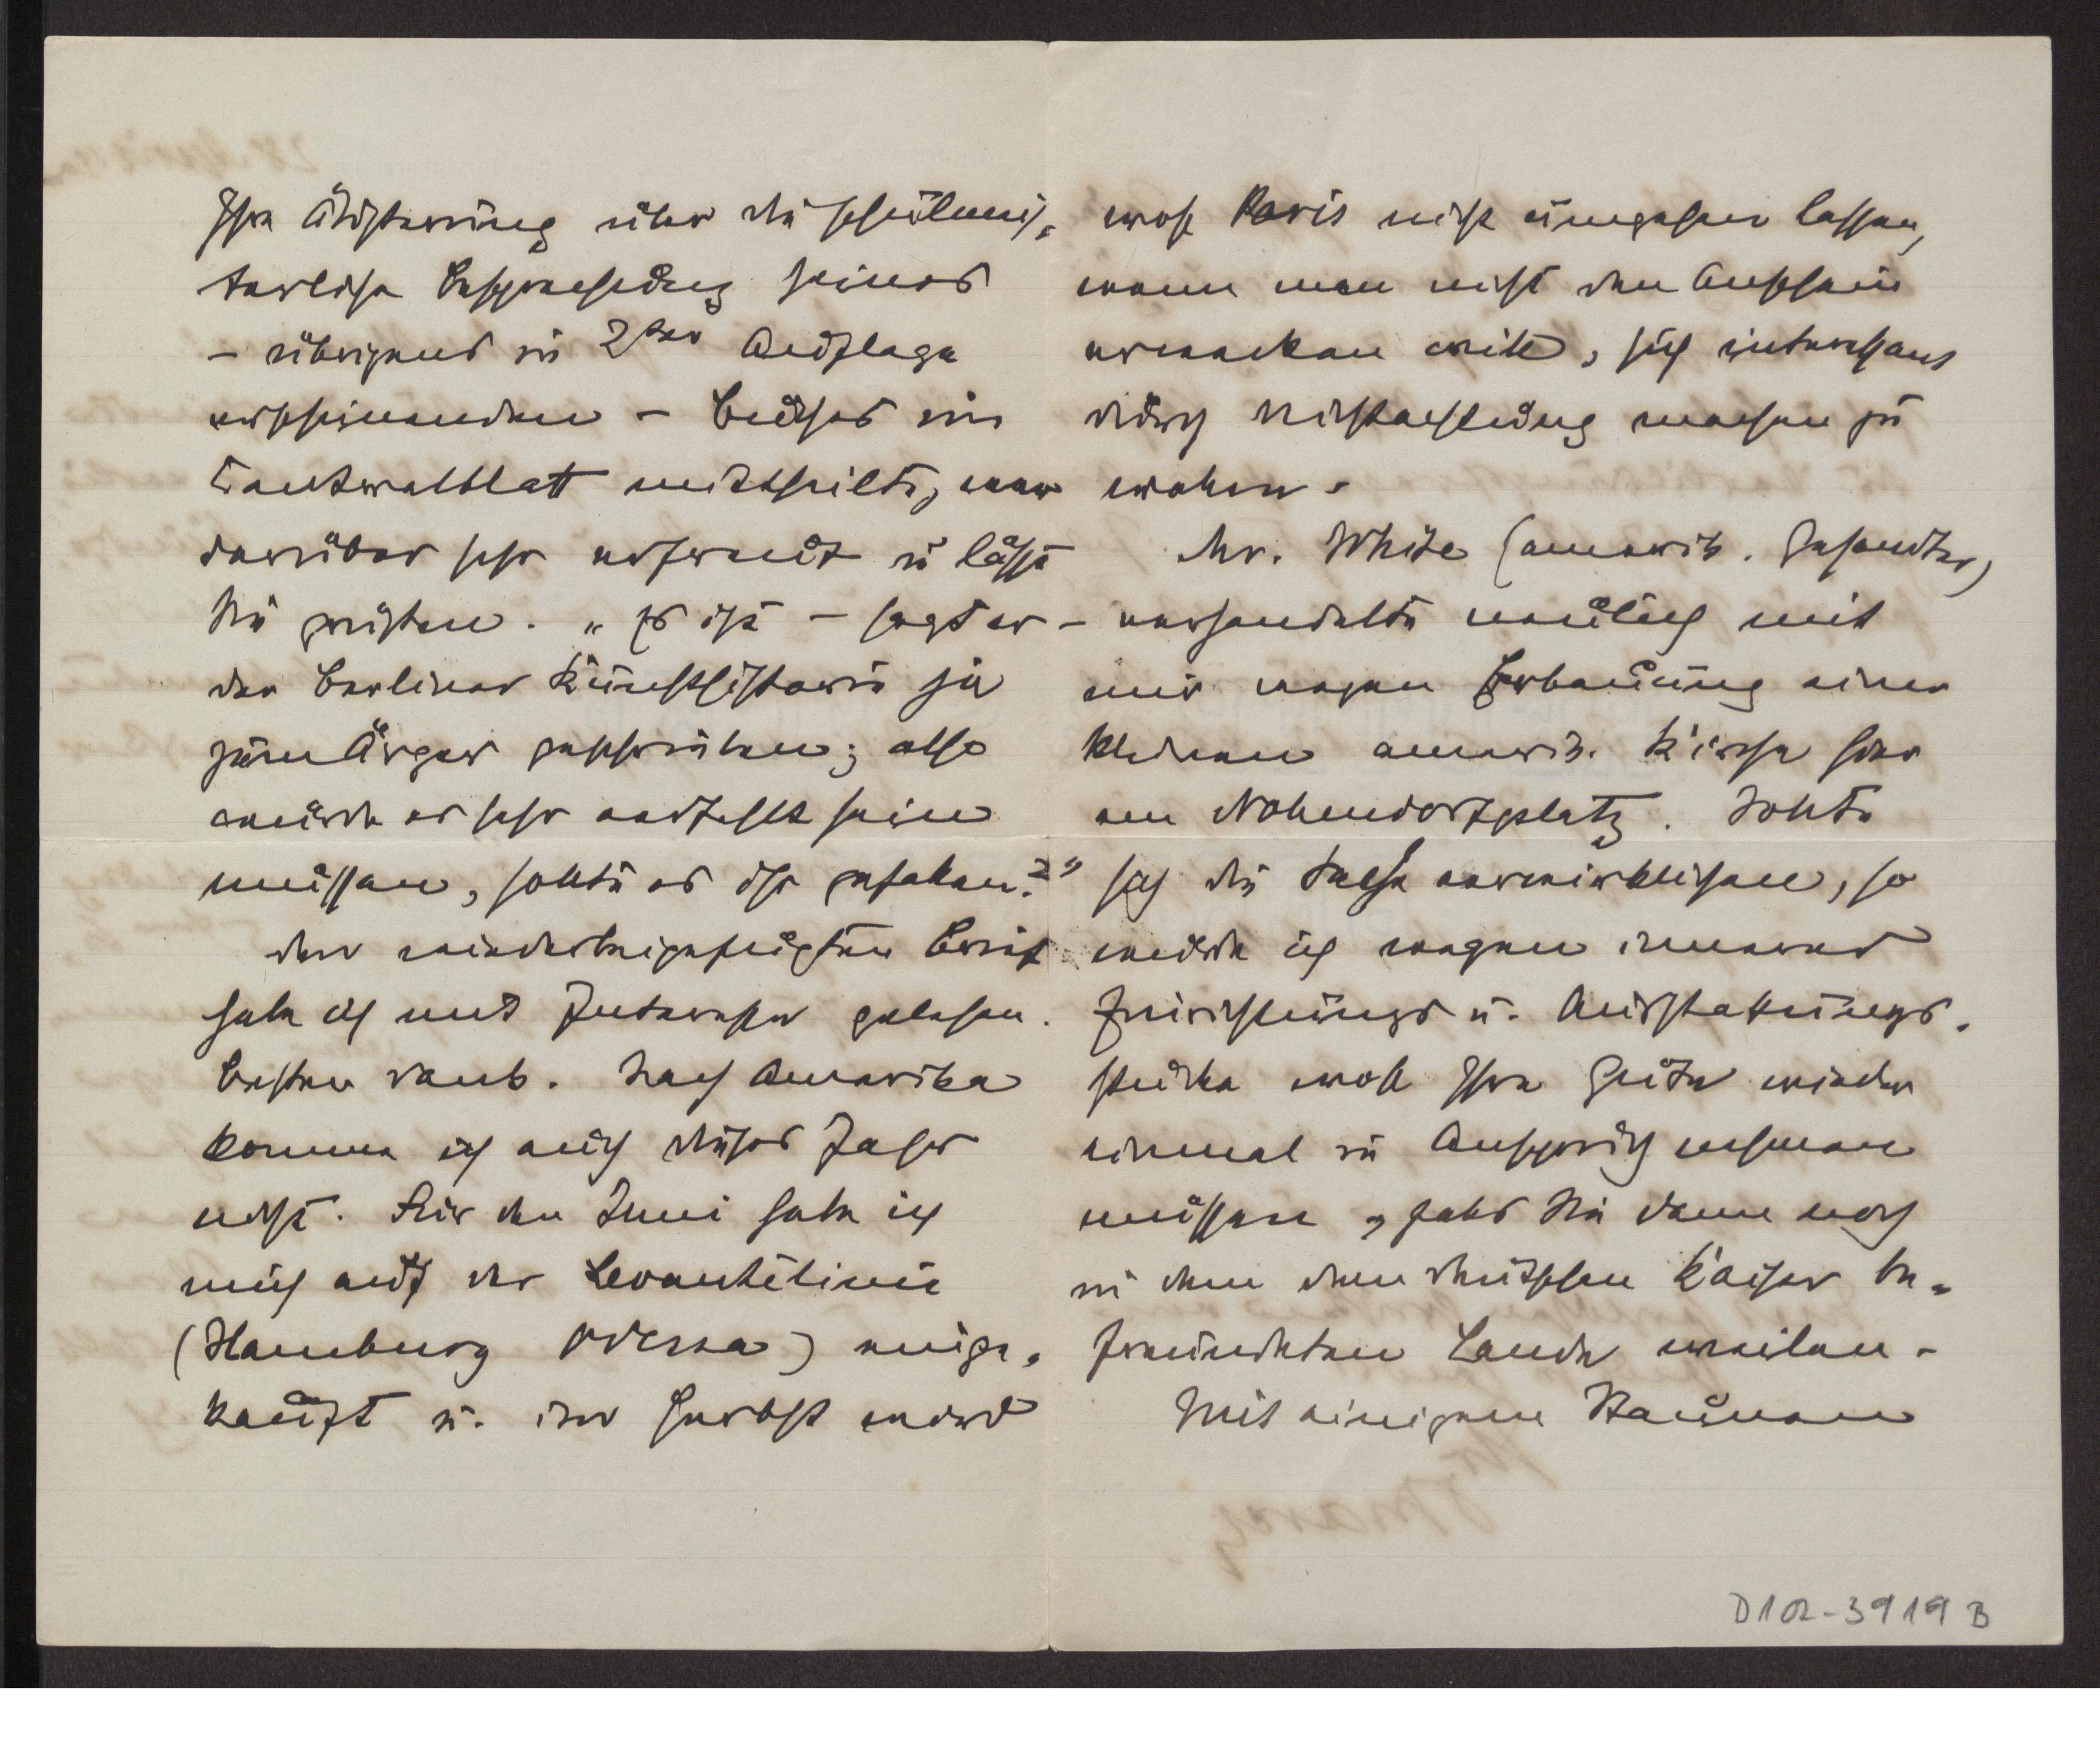 Ihre Äußerung über die schulmeis-
terliche Besprechung seines
– übrigens in 2ter Auflage
erscheinenden – Buches im
Centralblatt mittheilte, war
darüber sehr erfreut u läßt
Sie grüßen. "Es ist – sagt er –
den Berliner Kunsthistorikern ja
zum Ärger geschrieben; also
würde er sehr verfehlt sein
müssen, sollte es ihr gefallen."
Den wiederbeigefügten Brief
habe ich mit Interesse gelesen.
Besten Dank. Nach Amerika
komme ich auch dieses Jahr
nicht. Für den Juni habe ich
mich auf der Levantelinie
(Hamburg Odessa) einge-
kauft u. im Herbst wird
wohl Paris nicht umgehen lassen,
wenn man nicht den Anschein
erwecken will, sich interessant
durch Nichtachtung machen zu
wollen.
Mr. White (amerik. Gesandter)
verhandelte neulich mit
mir wegen Erbauung einer
kleinen amerik. Kirche hier
am Nollendorfplatz. Sollte
sich die Sache verwirklichen, so
würde ich wegen innerer
Einrichtungs u. Ausstattungs-
stücke wohl Ihre Güte wieder
einmal in Anspruch nehmen
müssen, falls Sie dann noch
in dem dem deutschen Kaiser be-
freundeten Lande weilen.
Mit einigem Staunen
D102-3919 B